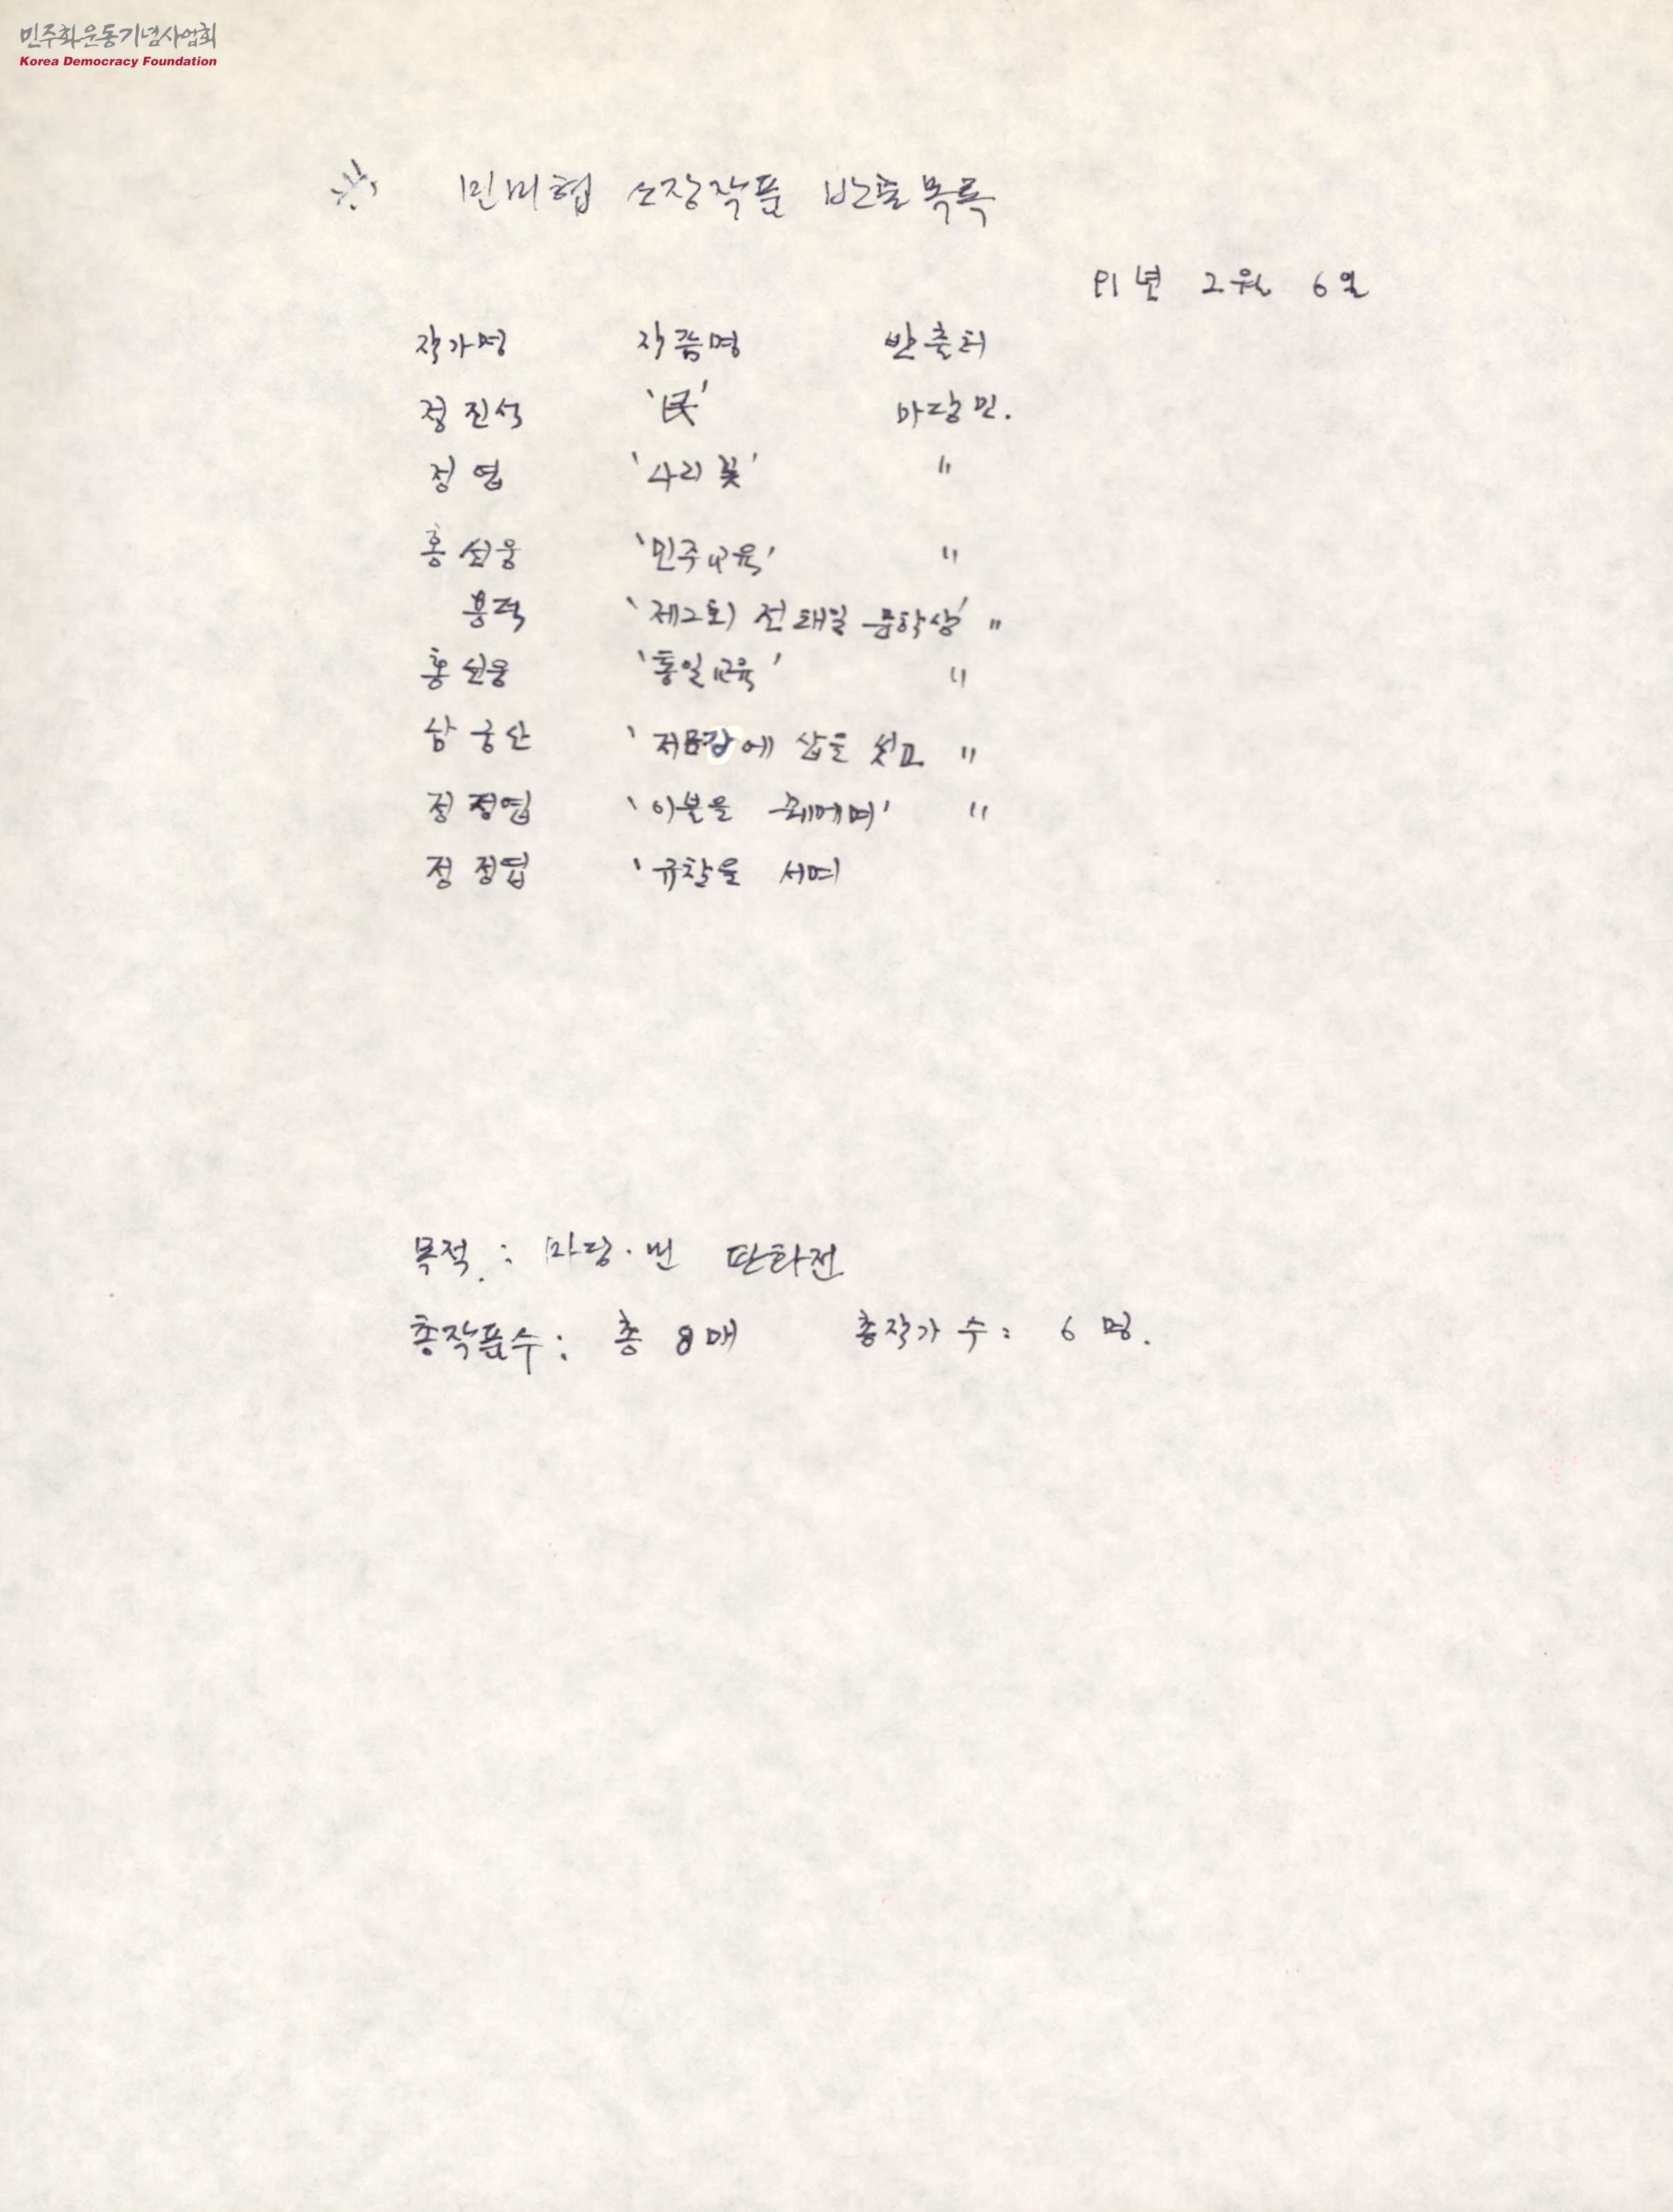 민주화운동기념사업회
Korea Democracy Foundation
※ 민미협 소장작품 반출목록
91년 2월 6일
작가명 작품명 반출터
정진석 '民' 마당민.
정엽 '싸리꽃' "
홍선웅 '민주교육' "
'제2회 전태일 문학상' "
홍선웅 '통일교육' "
남궁산 '저문강에 삽을 씻고 "
정정엽 '이불을 꿰메며' "
정정엽 '규찰을 서며
목적 : 마당·민 판화전
총작품수 : 총 8매 총작가 수 : 6명.